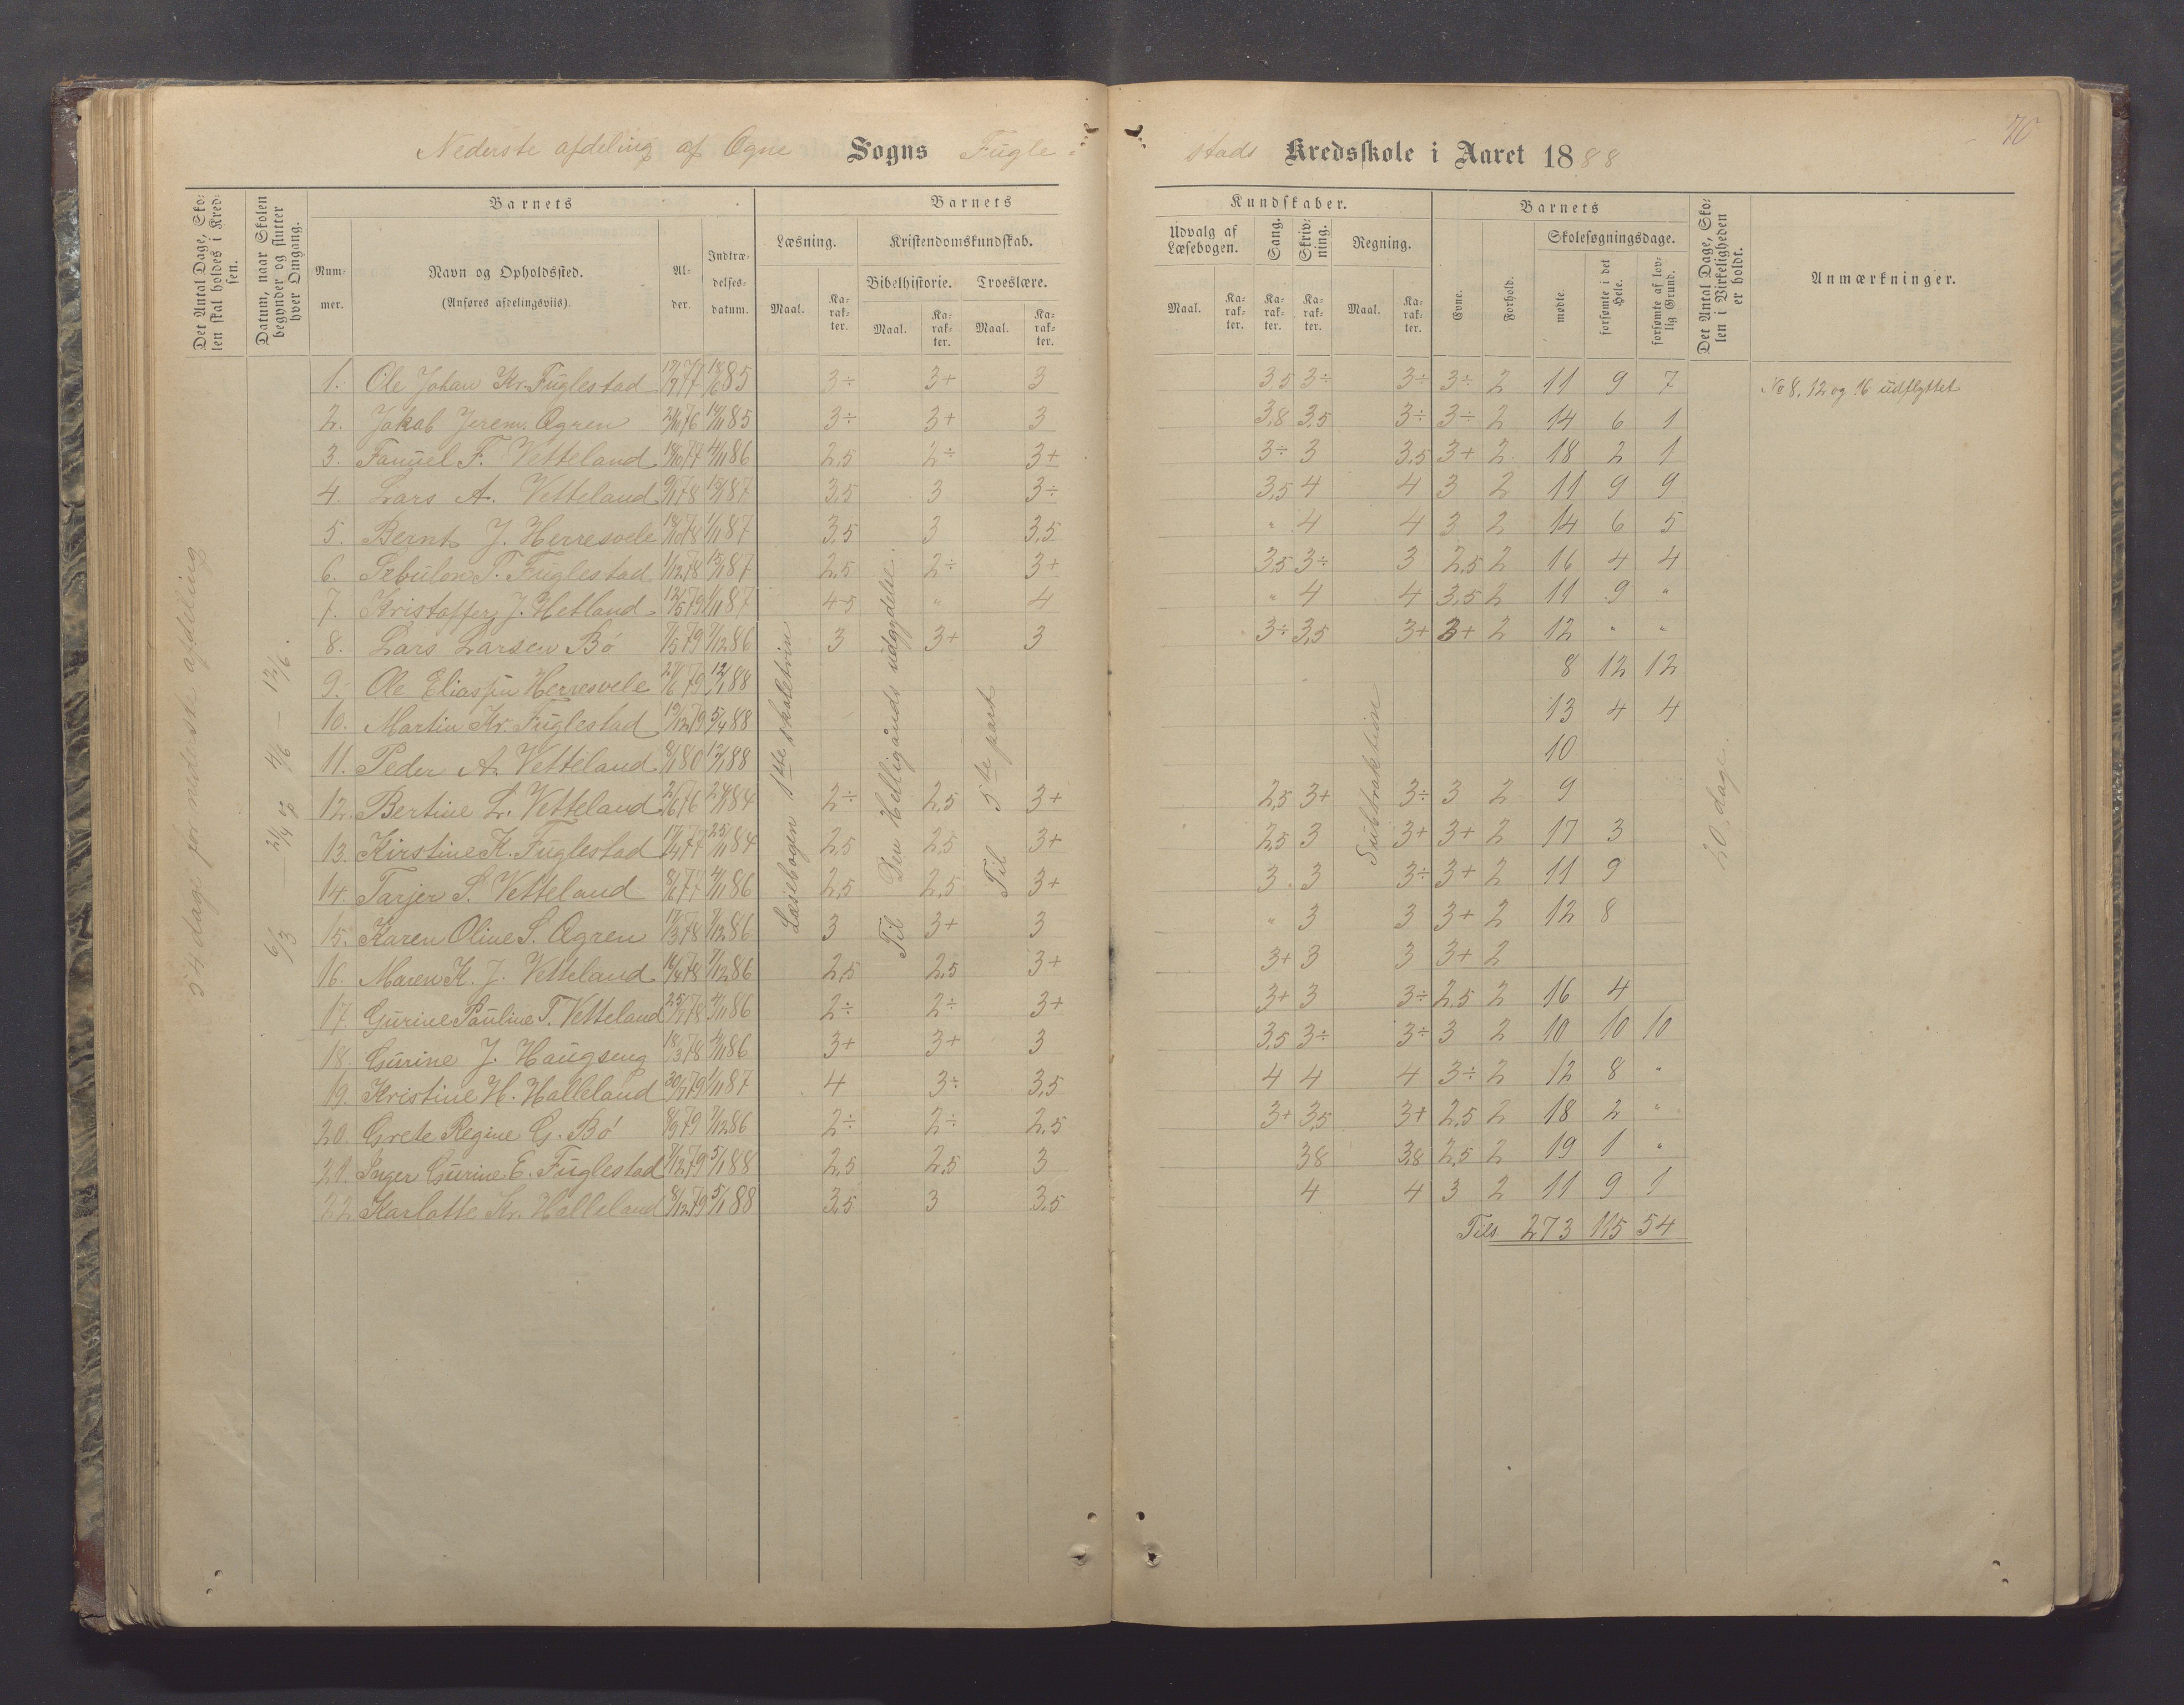 Nederste afdeling af Ogne Sogns Fugle-
stads Kredsskole i Aaret 1888
70
Det Antal Dage, Sko-
len skal holdes i Kred-
sen.
Datum, naar Skolen
begynder og slutter
hver Omgang.
Barnets
Num-
mer.
Navn og Opholdssted.
(Anføres afdelingsviis).
Al-
der.
Indtræ-
delses-
datum.
Barnets
Læsning.
Kristendomskundskab.
Bibelhistorie. Troeslære.
Maal. Ka-
rak-
ter.
Maal. Ka-
rak-
ter.
Maal. Ka-
rak-
ter.
Kundskaber.
Udvalg af
Læsebogen.
Maal. Ka-
rak-
ter.
Sang.
Ka-
rak-
ter.
Skriv-
ning.
Ka-
rak-
ter.
Regning.
Maal. Ka-
rak-
ter.
Barnets
Evne.
Forhold.
Skolesøgningsdage.
mødte.
forsømte i det
Hele.
forsømte af lov-
lig Grund.
Det Antal Dage, Sko-
len i Virkeligheden
er holdt.
Anmærkninger.
54 dage for nederste afdeling
6/3 — 21/4 og 4/6 — 12/6.
Læsebogen 1ste skoletrin
Til Den Helligånds udgydelse.
Til 5te part
Substraktion
20 dage.
No 8, 12 og 16 udflyttet
1. Ole Johan Kr. Fuglestad 3÷ 3+ 3 3,5 3÷ 3÷ 3÷ 2 11 9 7
2. Jakob Jerem. Ogren 3÷ 3+ 3 3,8 3,5 3÷ 3÷ 2 14 6 1
3. Fanuel F. Vetteland 2,5 2÷ 3+ 3÷ 3 3,5 3+ 2 18 2 1
4. Lars A. Vetteland 3,5 3 3÷ 3,5 4 4 3 2 11 9 9
5. Bernt J. Herresvele 3,5 3 3,5 " 4 4 3 2 14 6 5
6. Sebulon T. Fuglestad 1/12 78 15/1 87 2,5 2÷ 3+ 3,5 3÷ 3 2,5 2 16 4 4
7. Kristoffer J. Hetland 12/5 79 1/11 87 4-5 " 4 " 4 4 3,5 2 11 9 "
8. Lars Larsen Bö 7/5 79 7/12 86 3 3+ 3 3÷ 3,5 3+ 3+ 2 12 " "
9. Ole Eliassen Herresvele 27/6 79 12/1 88 8 12 12
10. Martin Kr. Fuglestad 19/12 79 5/4 88 13 4 4
11. Peder A. Vetteland 8/1 80 88 10
12. Bertine L. Vetteland 2÷ 2,5 3+ 2,5 3+ 3÷ 3 2 9
13. Kirstine K. Fuglestad 2,5 2,5 3+ 2,5 3 3+ 3+ 2 17 3
14. Tarjer S. Vetteland 8/6 77 4/11 86 2,5 2,5 3+ 3 3 3÷ 3+ 2 11 9
15. Karen Oline S. Ogren 7/12 86 3 3+ 3 " 3 3 3+ 2 12 8
16. Maren K. J. Vetteland 7/12 86 2,5 2,5 3+ 3+ 3 3 3+ 2
17. Gurine Pauline T. Vetteland 4/11 86 2÷ 2÷ 3+ 3+ 3 3÷ 2,5 2 16 4
18. Gurine J. Haugseng 18/3 78 4/11 86 3+ 3+ 3 3,5 3÷ 3÷ 3 2 10 10 10
19. Kristine H. Halleland 1/11 87 4 3÷ 3,5 4 4 4 3÷ 2 12 8 "
20 Grete Regine G. Bö 7/12 86 2÷ 2÷ 2,5 3+ 3,5 3+ 2,5 2 18 2 "
21. Inger Gurine E. Fuglestad 5/1 88 2,5 2,5 3 3,8 3,8 2,5 2 19 1 "
22 Karlotte Kr. Halleland 8/12 79 5/1 88 3,5 3 3,5 4 4 3 2 11 9 1
Tils 273 115 54